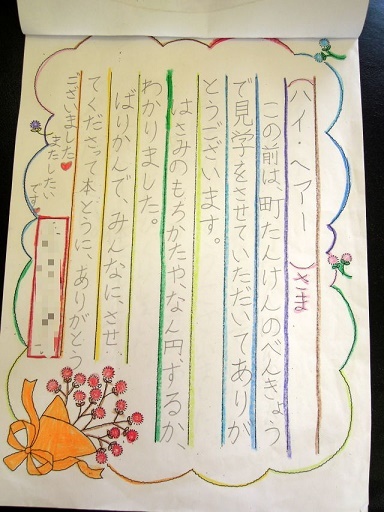 ハイ・ヘアー さま
この前は、町たんけんのべんきょう
で見学をさせていただいてありが
とうございます。
はさみのもちかたや、なん円、するか、
わかりました。
ばりかんで、みんなに、させ
てくださって本とうに、ありがとう
ございました
またしたい
です。